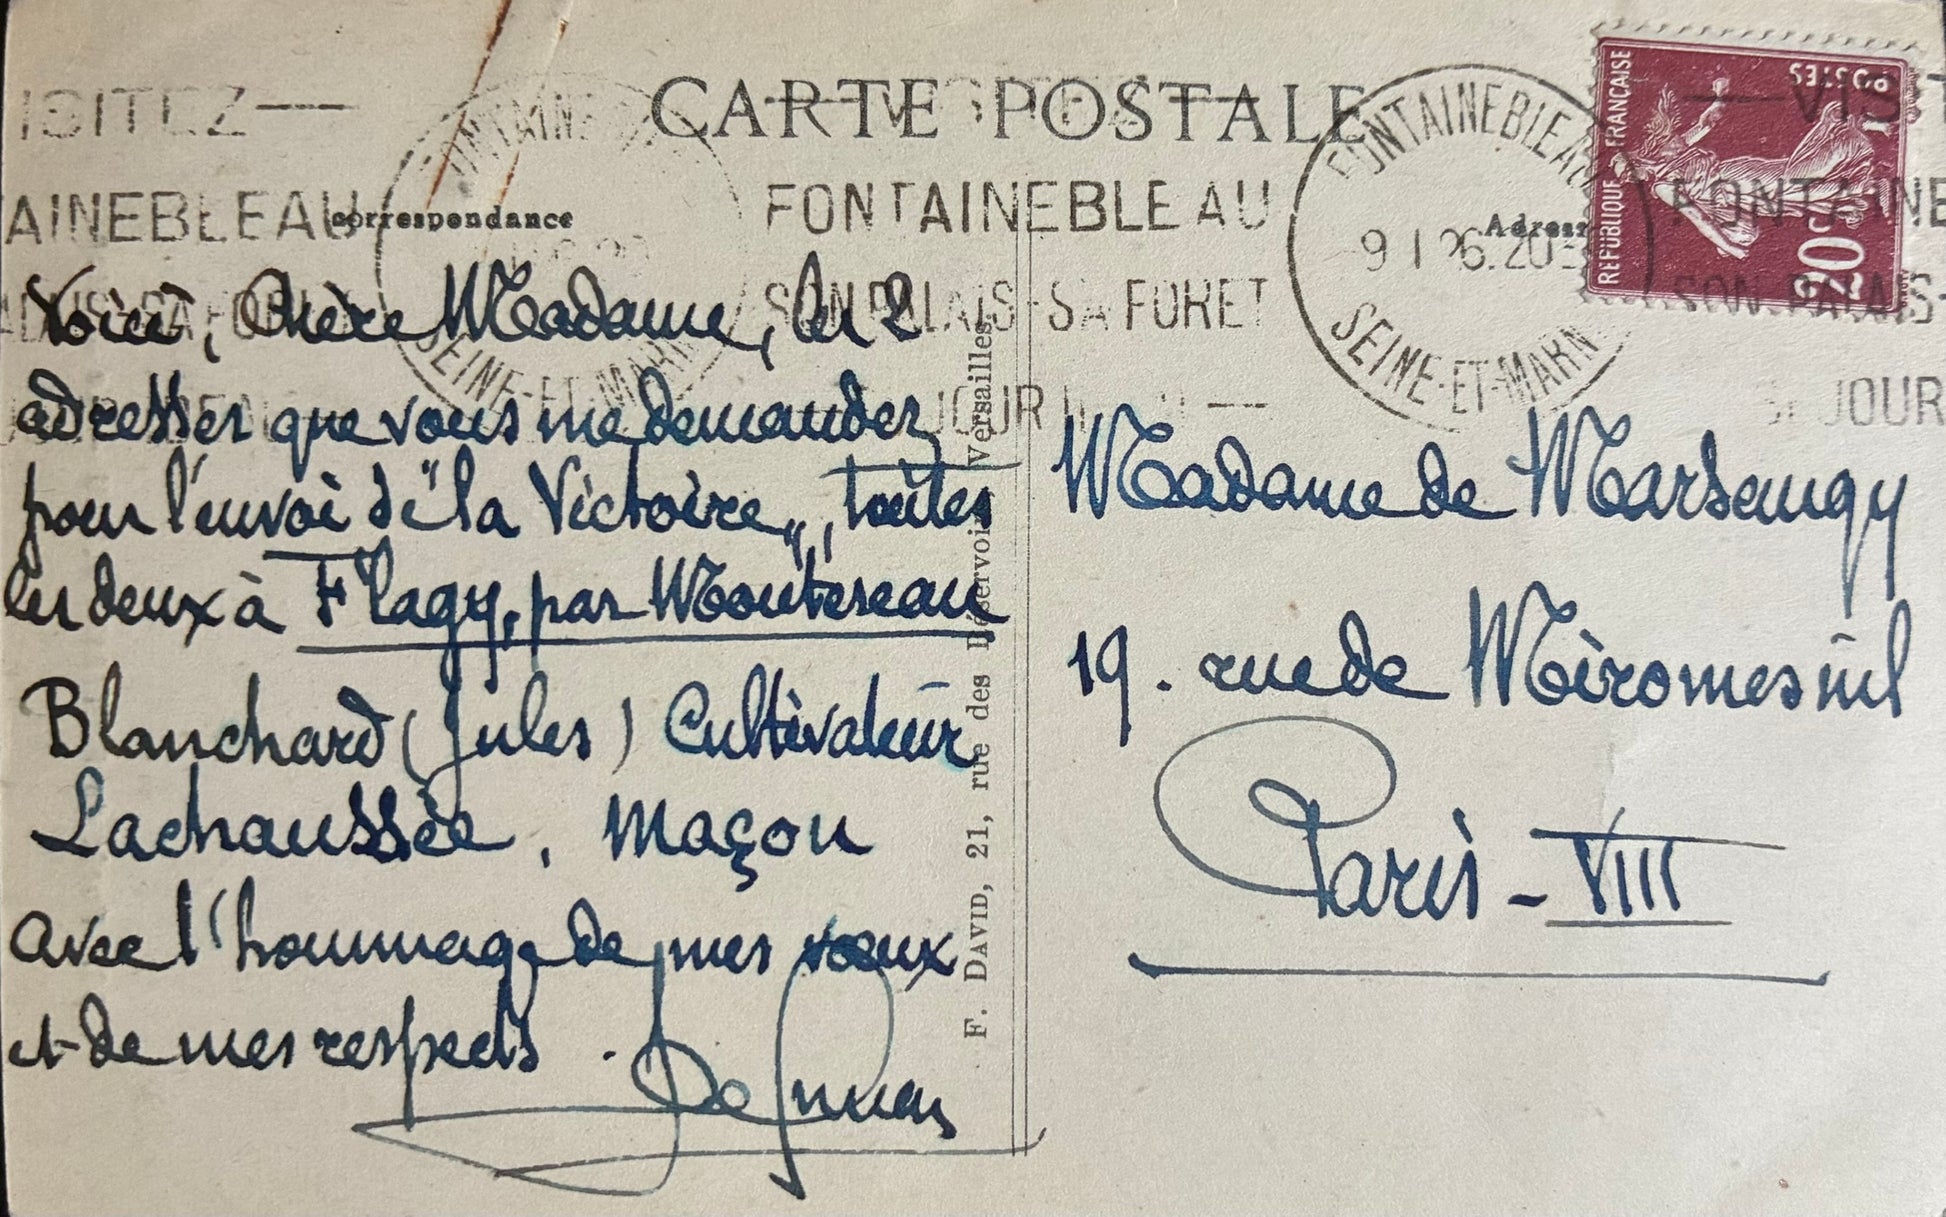 CARTE POSTALE
Correspondance
Adress
RÉPUBLIQUE FRANÇAISE
POSTES
20c
ISITEZ
AINEBLEAU
FONTAINEBLEAU
SON PALAIS-SA FORET
FONTAINEBLEAU
9 I 26.20
SEINE-ET-MARN
VIS
FONTAINE
SON PALAIS-
SEJOUR
SEINE-ET-MARN
Voici, Chère Madame, les 2
adresses que vous me demandez
pour l'envoi de "la Victoire", toutes
les deux à Flagy, par Montereau
Blanchard (Jules) Cultivateur
Lachaussée, Maçon
avec l'hommage de mes voeux
et de mes respects.
F. DAVID, 21, rue des Réservoirs, Versailles
Madame de Marsangy
19. rue de Miromesnil
Paris - VIII